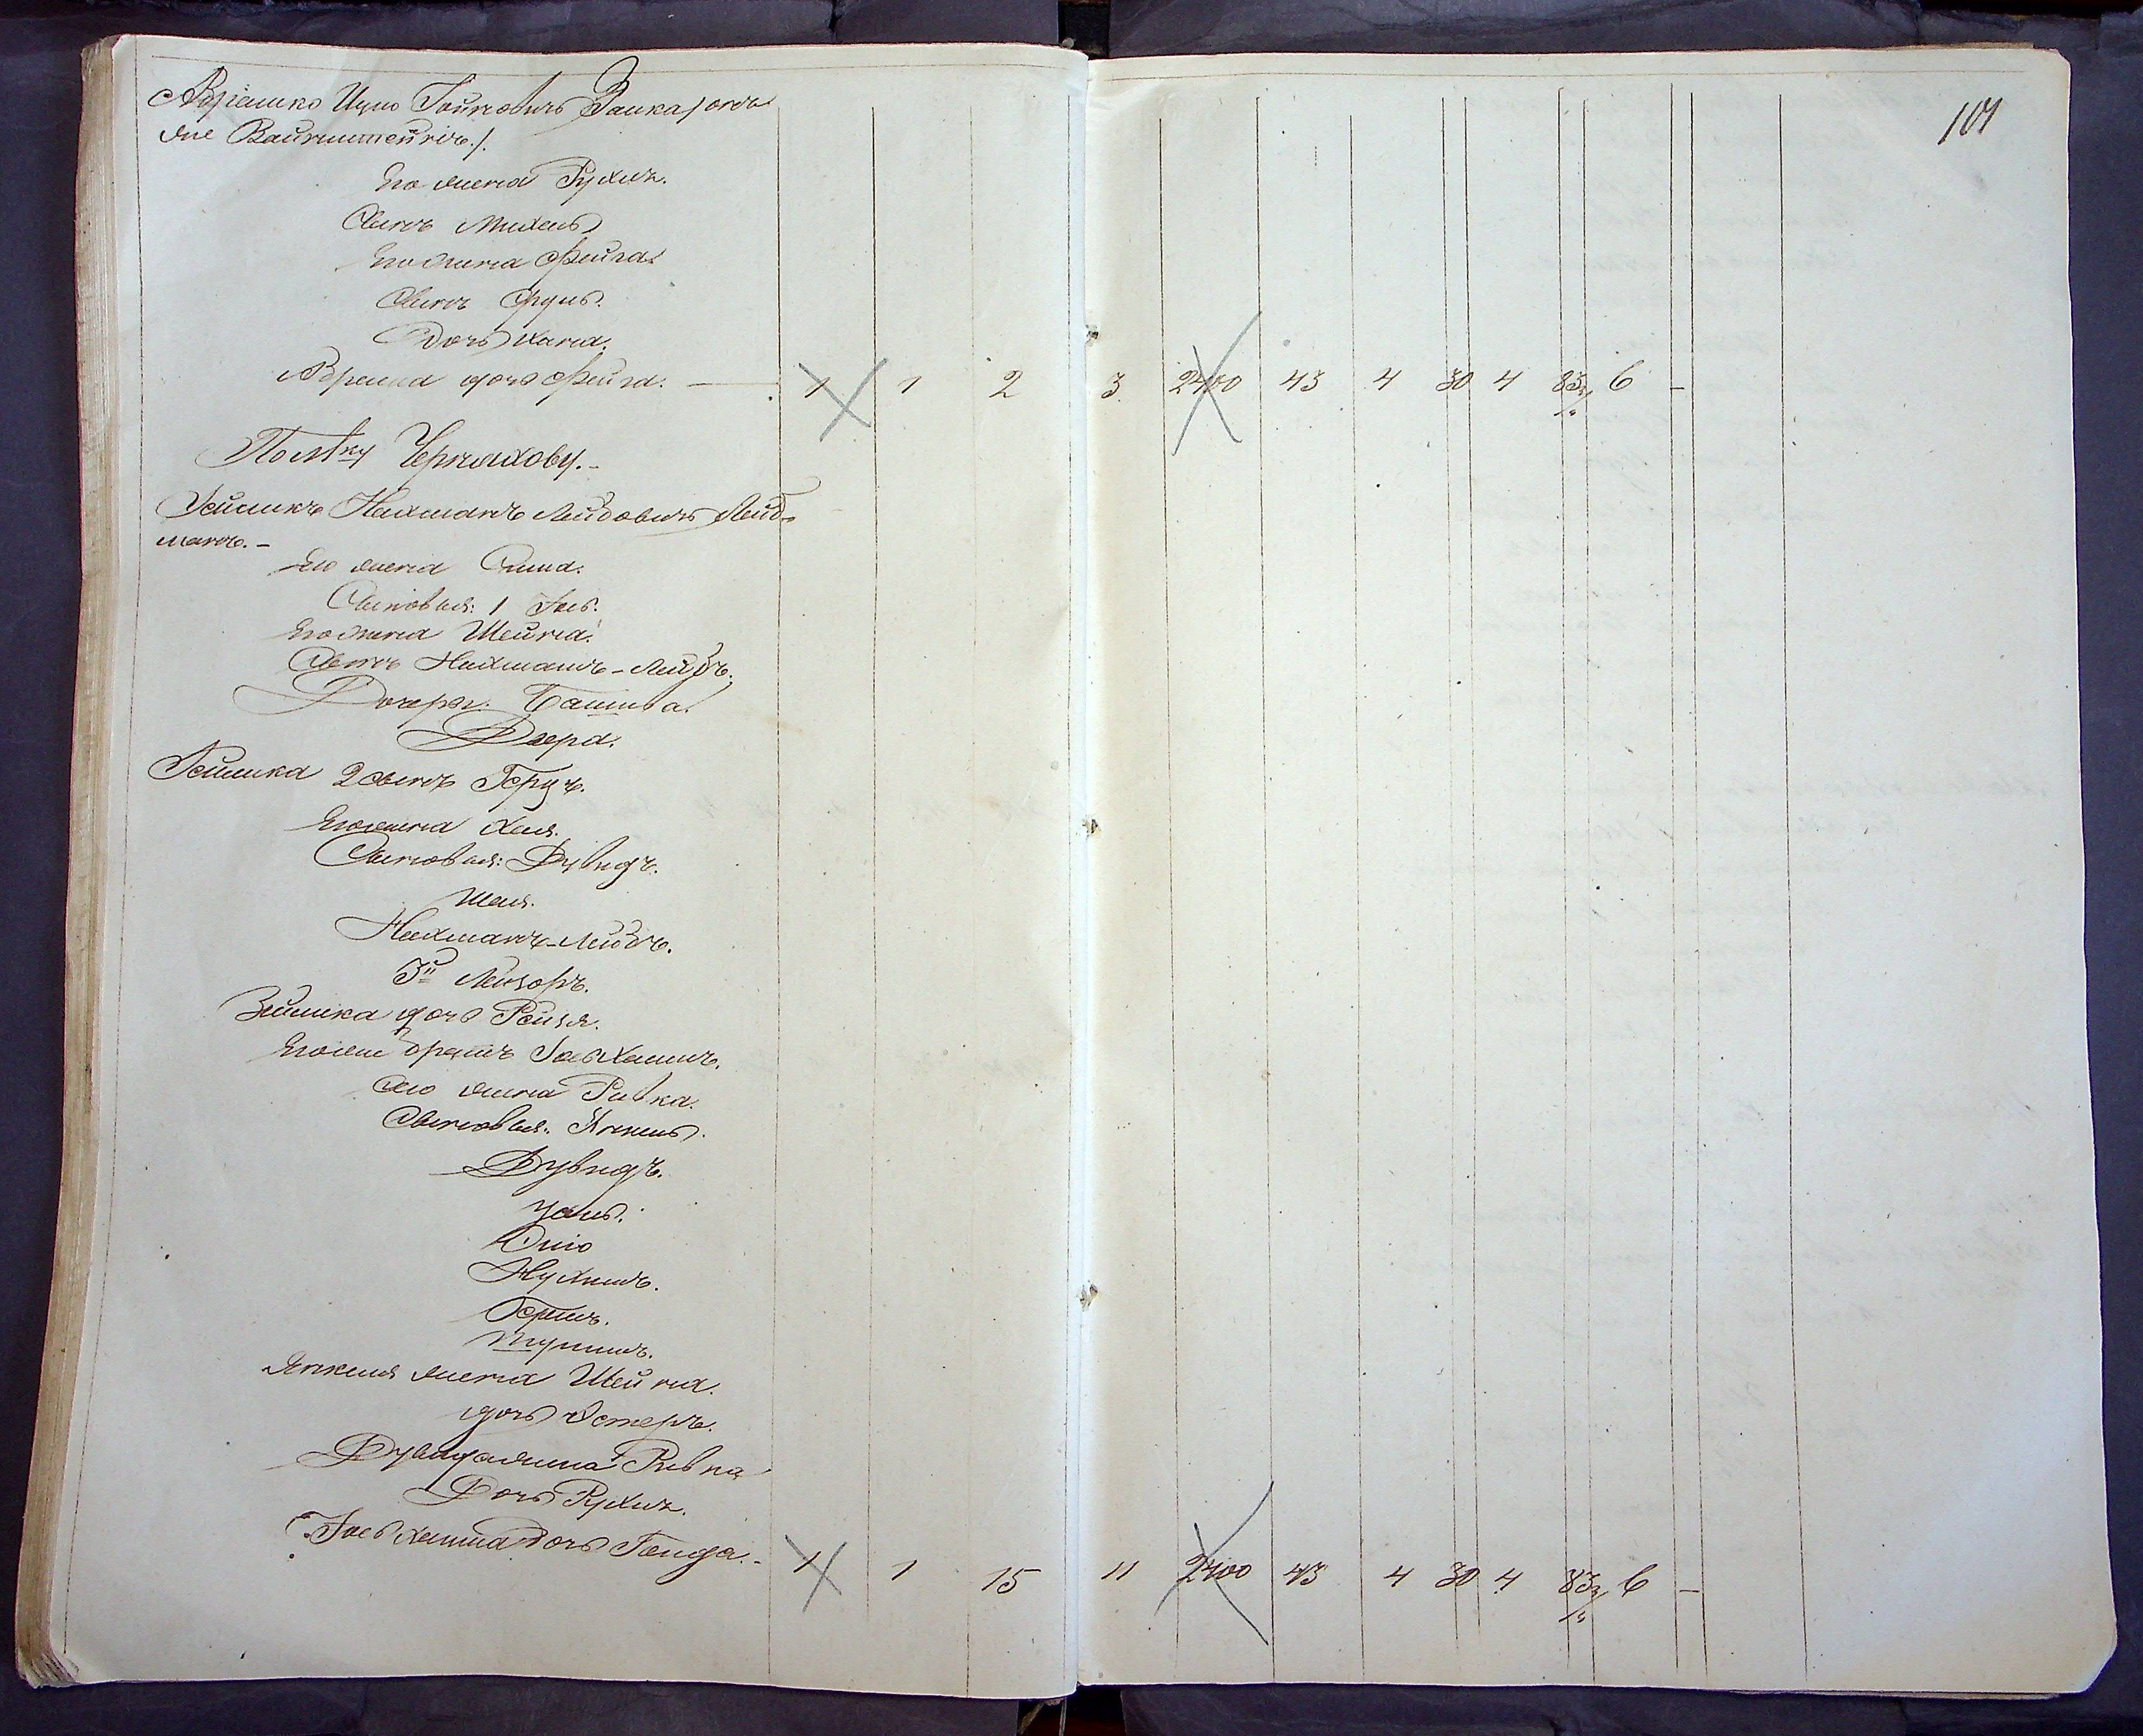 Абрамко Ицко Гойковичъ Занка /онъ
же Вайнштейнъ./.
Его жена Рухля.
Сынъ Михель
Его жена Фейга.
Сынъ Сруль.
Дочь Хана.
Абрама дочь Фейга. — 1 1 2 3 2400 43 4 30 4 83 3/4 6 —
101
Полѣку Черняхову.-
Зейликъ Нахманъ Лейбовичъ Лейб-
манъ.-
Его жена Сима.
Сыновья: 1 Іось.
Его жена Шейна.
Сынъ Нахманъ-Лейбъ.
Дочери: Башива.
Двера.
Зейлика 2 сынъ Герцъ.
Его жена Хая.
Сыновья: Дувидъ.
Шая.
Нахманъ-Лейбъ.
3й Лейзоръ.
Зейлика дочь Рейзя.
Его же братъ Іось Хаимъ.
Его жена Ривка.
Сыновья: Янкель.
Дувидъ.
Нухимъ.
Гершъ.
Янкеля жена Шейна.
дочь Эстеръ.
Дувида жена Ривка
Дочь Рухля.
Іось Хаима дочь Гольда.- 1 1 15 11 2400 43 4 30 4 83 3/4 6 —